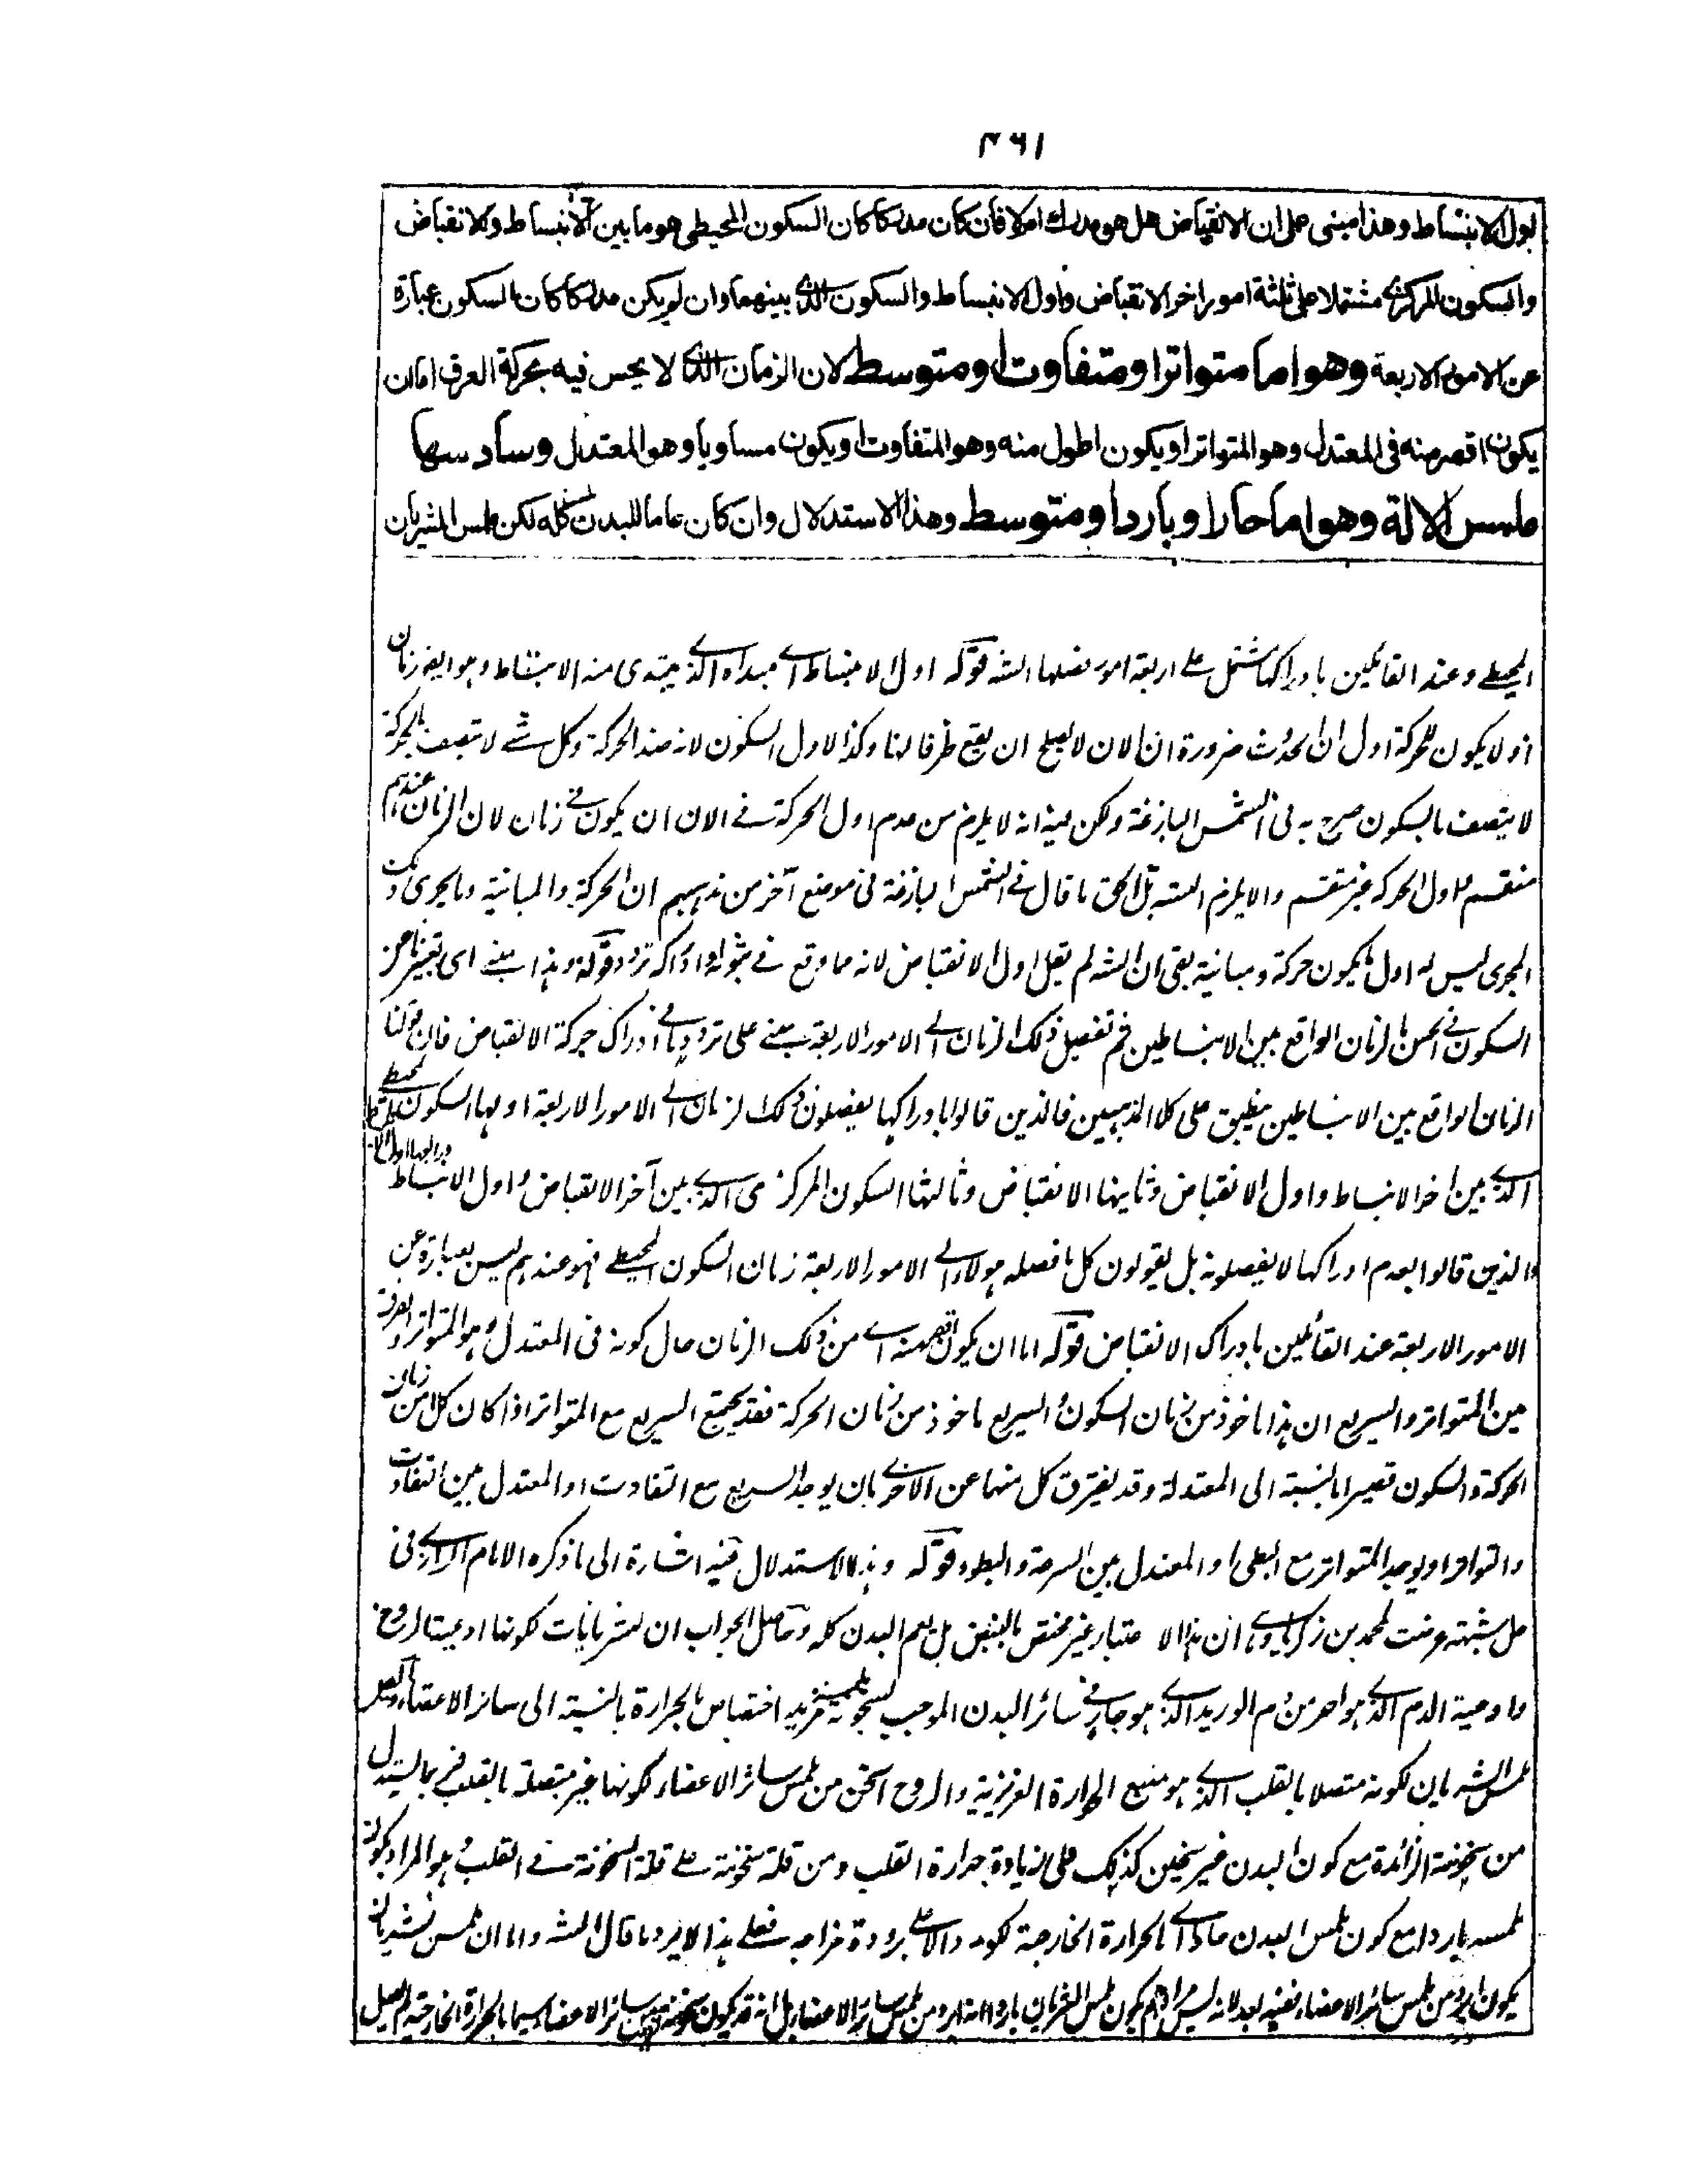 ۴۶۱
اول الانبساط وهذا مبنى على ان الانقباض هل هو مدرك ام لا فان كان مدركا كان السكون المحيطى هو ما بين الانبساط والانقباض
والسكون المركزى مشتملا على ثلثة امور اخر الانقباض واول الانبساط والسكون الذى بينهما وان لم يكن مدركا كان السكون عبارة
عن الامور الاربعة وهو اما متواتر او متفاوت او متوسط لان الزمان الذى لا يحس فيه بحركة العرق اما ان
يكون اقصر منه فى المعتدل وهو المتواتر او يكون اطول منه وهو المتفاوت او يكون مساويا وهو المعتدل وسادسها
ملمس الالة وهو اما حار او بارد او متوسط وهذا الاستدلال وان كان عاما للبدن كله لكن ملمس الشريان
المحيطے وعند القائلين بادراكها مشتمل على اربعة امور فصلها الشه قوله اول الانبساط اے مبداه الذے يبتدى منه الانبساط وهو ايضا زمان
اذ لا يكون للحركة اول ان الحدوث ضرورة ان الان لا يصلح ان يقع ظرفا لها وكذا لاول السكون لانه ضد الحركة وكل شے لا يتصف بالحركة
لا يتصف بالسكون صرح به فى الشمس البازغة ولكن فيه انه لا يلزم من عدم اول الحركة فے الان ان يكون فے زمان لان الزمان عندهم
منقسم واول الحركة غير منقسم والا يلزم بل الحق ما قال فے الشمس البازغة فى موضع آخر من مذهبهم ان الحركة والمباينة وما يجرى ذلك
المجرى ليس له اول يكون حركة ومباينة بقى ان الشه لم يقل اول الانقباض لانه مما وقع فے ادراكه تردد قوله وهذا مبنے اى تعبيرنا عن
السكون فے الحس بالزمان الواقع بين الانبساطين ثم تفصيل ذلك الزمان الے الامور الاربعة مبنے على تردد فے ادراك حركة الانقباض فان قولنا
الزمان الواقع بين الانبساطين ينطبق على كلا المذهبين فالذين قالوا بادراكها يفصلون ذلك الزمان الے الامور الاربعة اولها السكون المحيطے
الذے بين اخر الانبساط واول الانقباض وثانيها الانقباض وثالثها السكون المركزى الذے بين آخر الانقباض واول الانبساط
والذين قالوا بعدم ادراكها لا يفصلونه بل يقولون كل ما فصله هولاء الے الامور الاربعة زمان السكون المحيطے فهو عندهم ليس بعبارة عن
الامور الاربعة عند القائلين بادراك الانقباض قوله اما ان يكون اقصر منه اے من ذلك الزمان حال كونه فى المعتدل وهو المتواتر والفرق
بين المتواتر والسريع ان هذا ماخوذ من زمان السكون والسريع ماخوذ من زمان الحركة فقد يجتمع السريع مع المتواتر اذا كان كل من زمان
الحركة والسكون قصيرا بالنسبة الى المعتدلة وقد يفترق كل منهما عن الاخر بان يوجد السريع مع التفاوت او المعتدل بين التفاوت
والتواتر او يوجد المتواتر مع البطى او المعتدل بين السرعة والبطوء قوله وهذا الاستدلال فيه اشارة الى ما ذكره الامام الرازے فى
حل شبهة عرضت لمحمد بن زكريا وهے ان هذا الاعتبار غير مختص بالنبض بل يعم البدن كله وحاصل الجواب ان الشريانات لكونها اوعية الروح
واوعية الدم الذے هو احر من دم الوريد الذے هو جار فے سائر البدن الموجب لسخونة ملمسه مزيد اختصاص بالحرارة بالنسبة الى سائر الاعضاء
ملمس الشريان لكونه متصلا بالقلب الذے هو منبع الحرارة الغريزية والروح اسخن من ملمس سائر الاعضاء لكونها غير متصلة بالقلب فربما يستدل
من سخونته الزائدة مع كون البدن غير سخين كذلك على زيادة حرارة القلب ومن قلة سخونته على قلة السخونة فے القلب وهو المراد بكون
ملمسه باردا مع كون ملمس البدن حارا بالحرارة الخارجة لكونه دالا على برودة مزاجه فعلے هذا لا يرد ما قال الشه واما ان ملمس الشريان
يكون ابرد من ملمس سائر الاعضاء ففيه بعد لانه ليس مرادهم بكون ملمس الشريان باردا انه ابرد من ملمس سائر الاعضاء بل انه قد يكون